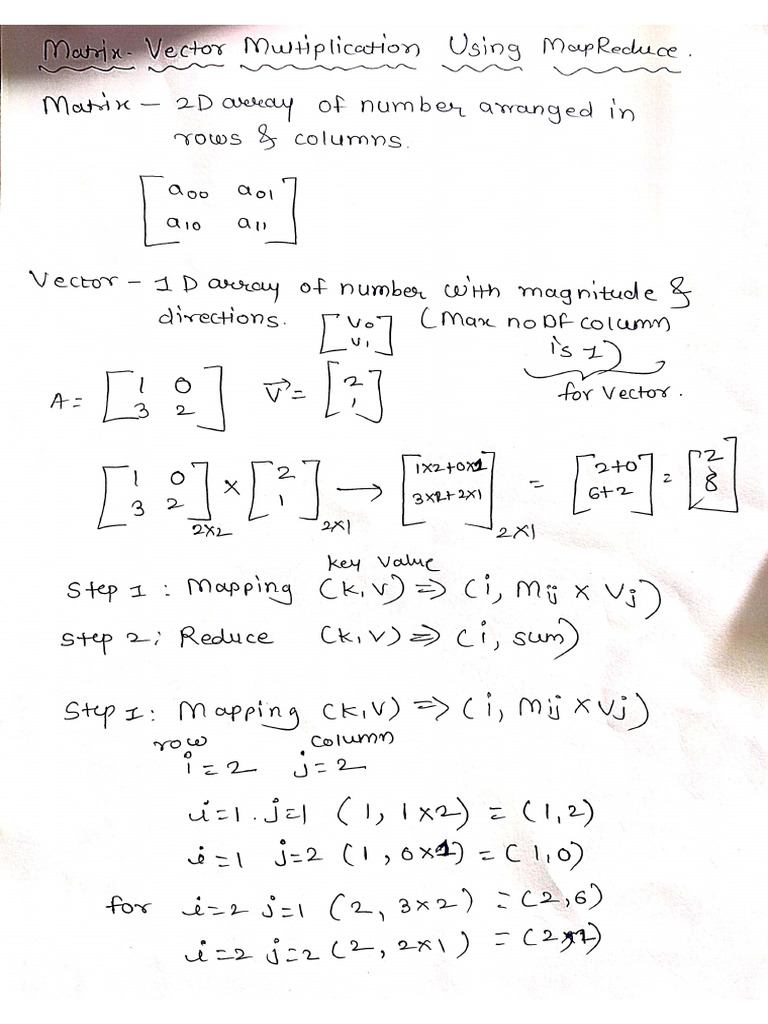 Matrix-Vector Multiplication Using MapReduce.
Matrix – 2D array of number arranged in
rows & columns.
[a00 a01
a10 a11]
Vector – 1D array of number with magnitude &
directions. [V0 V1] (Max no Of column
is 1)
for vector.
A = [1 0
3 2] V⃗ = [2
1]
[1 0
3 2]2×2 × [2
1]2×1 → [1×2+0×1
3×2+2×1]2×1 = [2+0
6+2] = [2
8]
key value
Step 1 : Mapping (k,v) ⇒ (i, Mij × Vj)
Step 2: Reduce (k,v) ⇒ (i, sum)
Step 1: Mapping (k,v) ⇒ (i, Mij × Vj)
row column
i = 2 j = 2
i=1. j=1 (1, 1×2) = (1,2)
i=1 j=2 (1, 0×1) = (1,0)
for i=2 j=1 (2, 3×2) = (2,6)
i=2 j=2 (2, 2×1) = (2